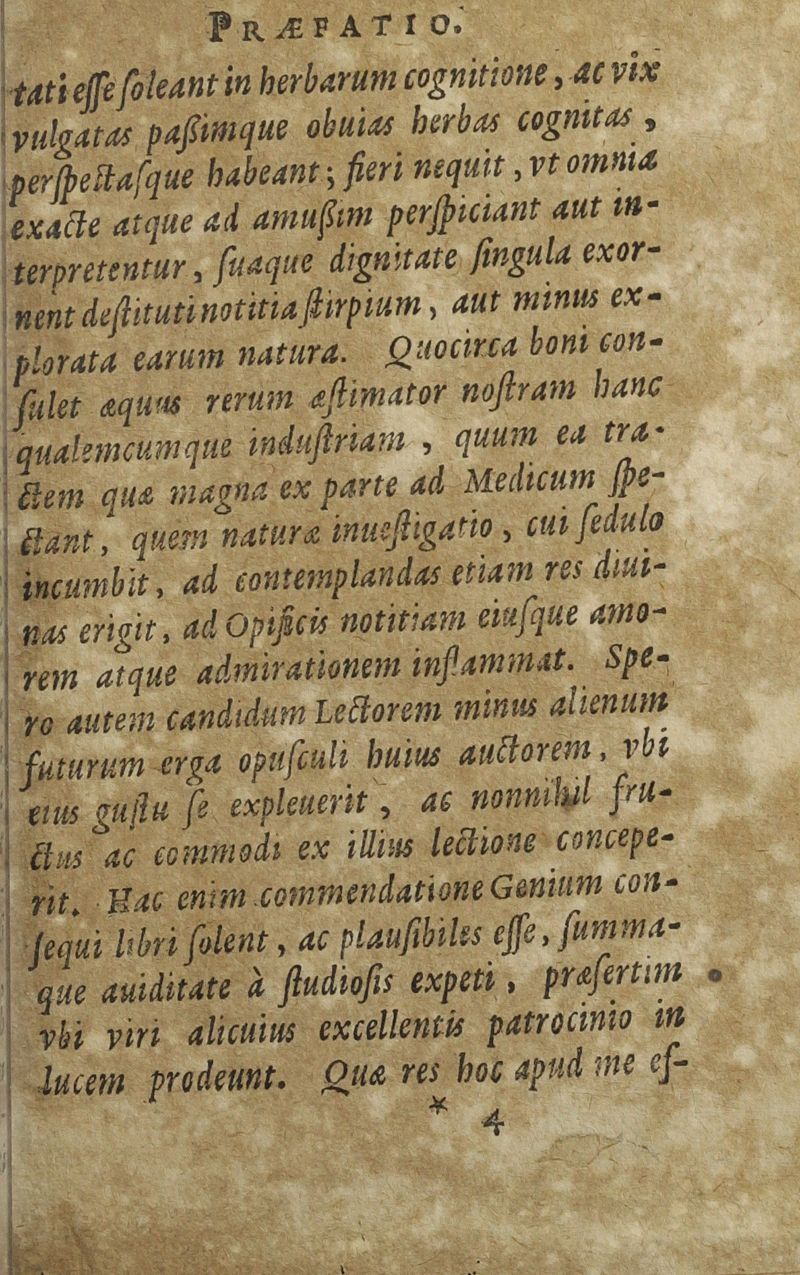 PRÆFATIO.
tati eſſe ſoleant in herbarum cognitione, ac vix
vulgatas paßimque obuias herbas cognitas,
perſpectaſque habeant; fieri nequit, vt omnia
exacte atque ad amußim perſpiciant aut in-
terpretentur, ſuaque dignitate ſingula exor-
nent deſtituti notitia ſtirpium, aut minus ex-
plorata earum natura. Quocirca boni con-
ſulet æquus rerum æſtimator noſtram hanc
qualemcumque induſtriam, quum ea tra-
ctem quæ magna ex parte ad Medicum ſpe-
ctant, quem naturæ inueſtigatio, cui ſedulo
incumbit, ad contemplandas etiam res diui-
nas erigit, ad Opificis notitiam eiuſque amo-
rem atque admirationem inflammat. Spe-
ro autem candidum Lectorem minus alienum
futurum erga opuſculi huius auctorem, vbi
eius guſtu ſe expleuerit, ac nonnihil fru-
ctus ac commodi ex illius lectione concepe-
rit. Hac enim commendatione Genium con-
ſequi libri ſolent, ac plauſibiles eſſe, ſumma-
que auiditate à ſtudioſis expeti, præſertim
vbi viri alicuius excellentis patrocinio in
lucem prodeunt. Quæ res hoc apud me ef-
* 4